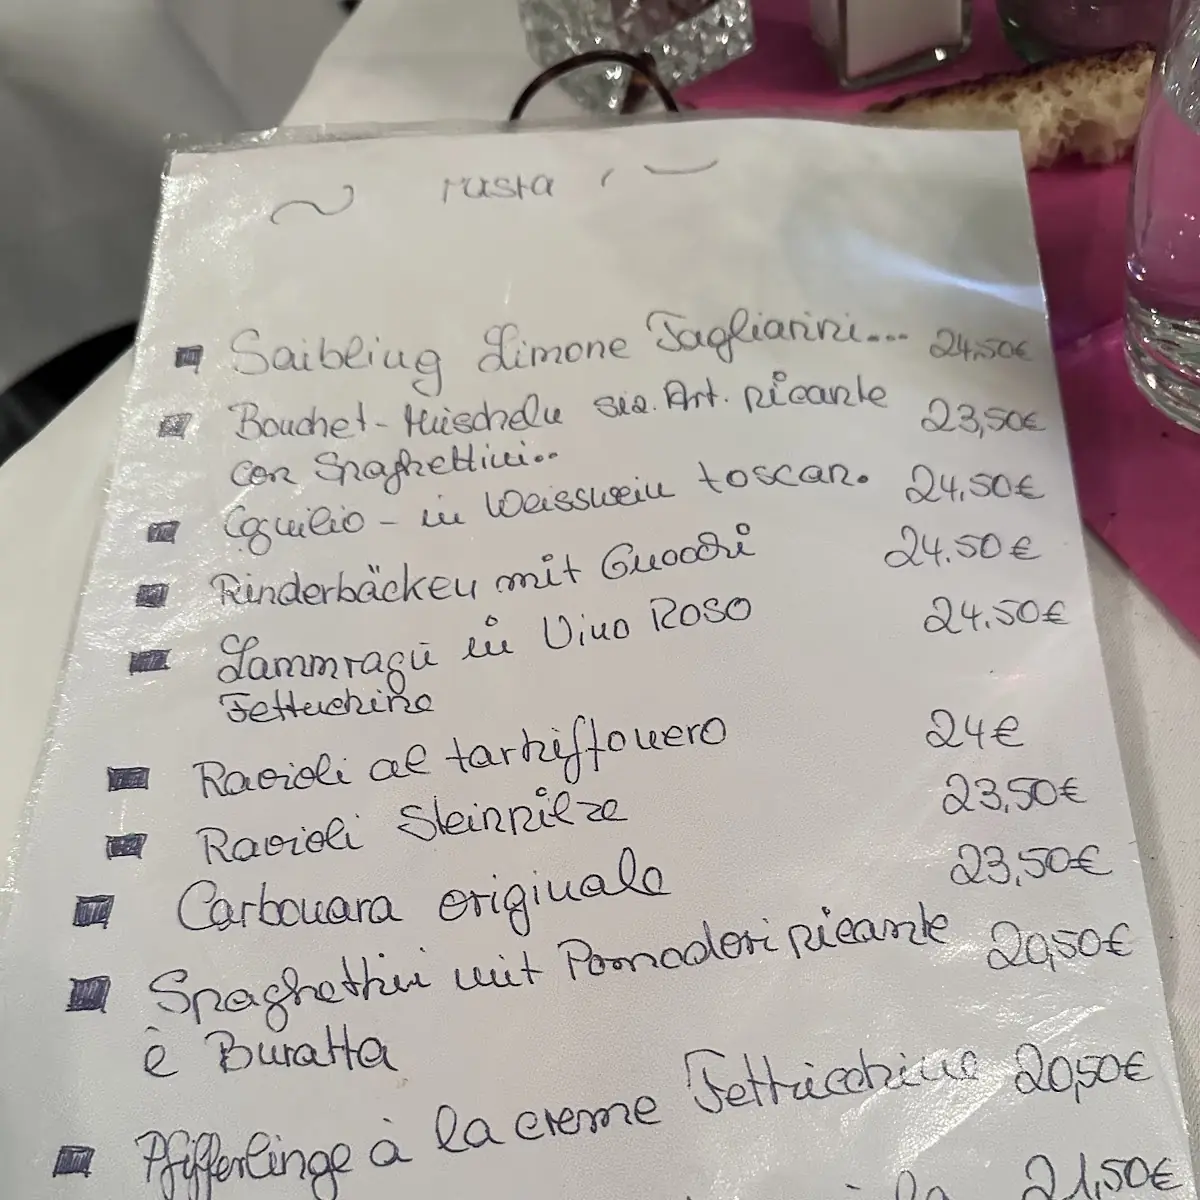 Pasta
Saibling Limone Tagliarini... 24,50€
Bouchet-Muscheln siz. Art. picante 23,50€
con Spaghettini..
Coquilio - in Weisswein toscan. 24,50€
Rinderbäcken mit Gnocchi 24.50€
Lammragu in Vino Roso 24.50€
Fettuchine
Ravioli al tarhiffonero 24€
Ravioli Steinpilze 23,50€
Carbonara originale 23,50€
Spaghettini mit Pomodori picante 20,50€
è Buratta
Pfifferlinge à la creme Fettucchine 20,50€
la 21,50€